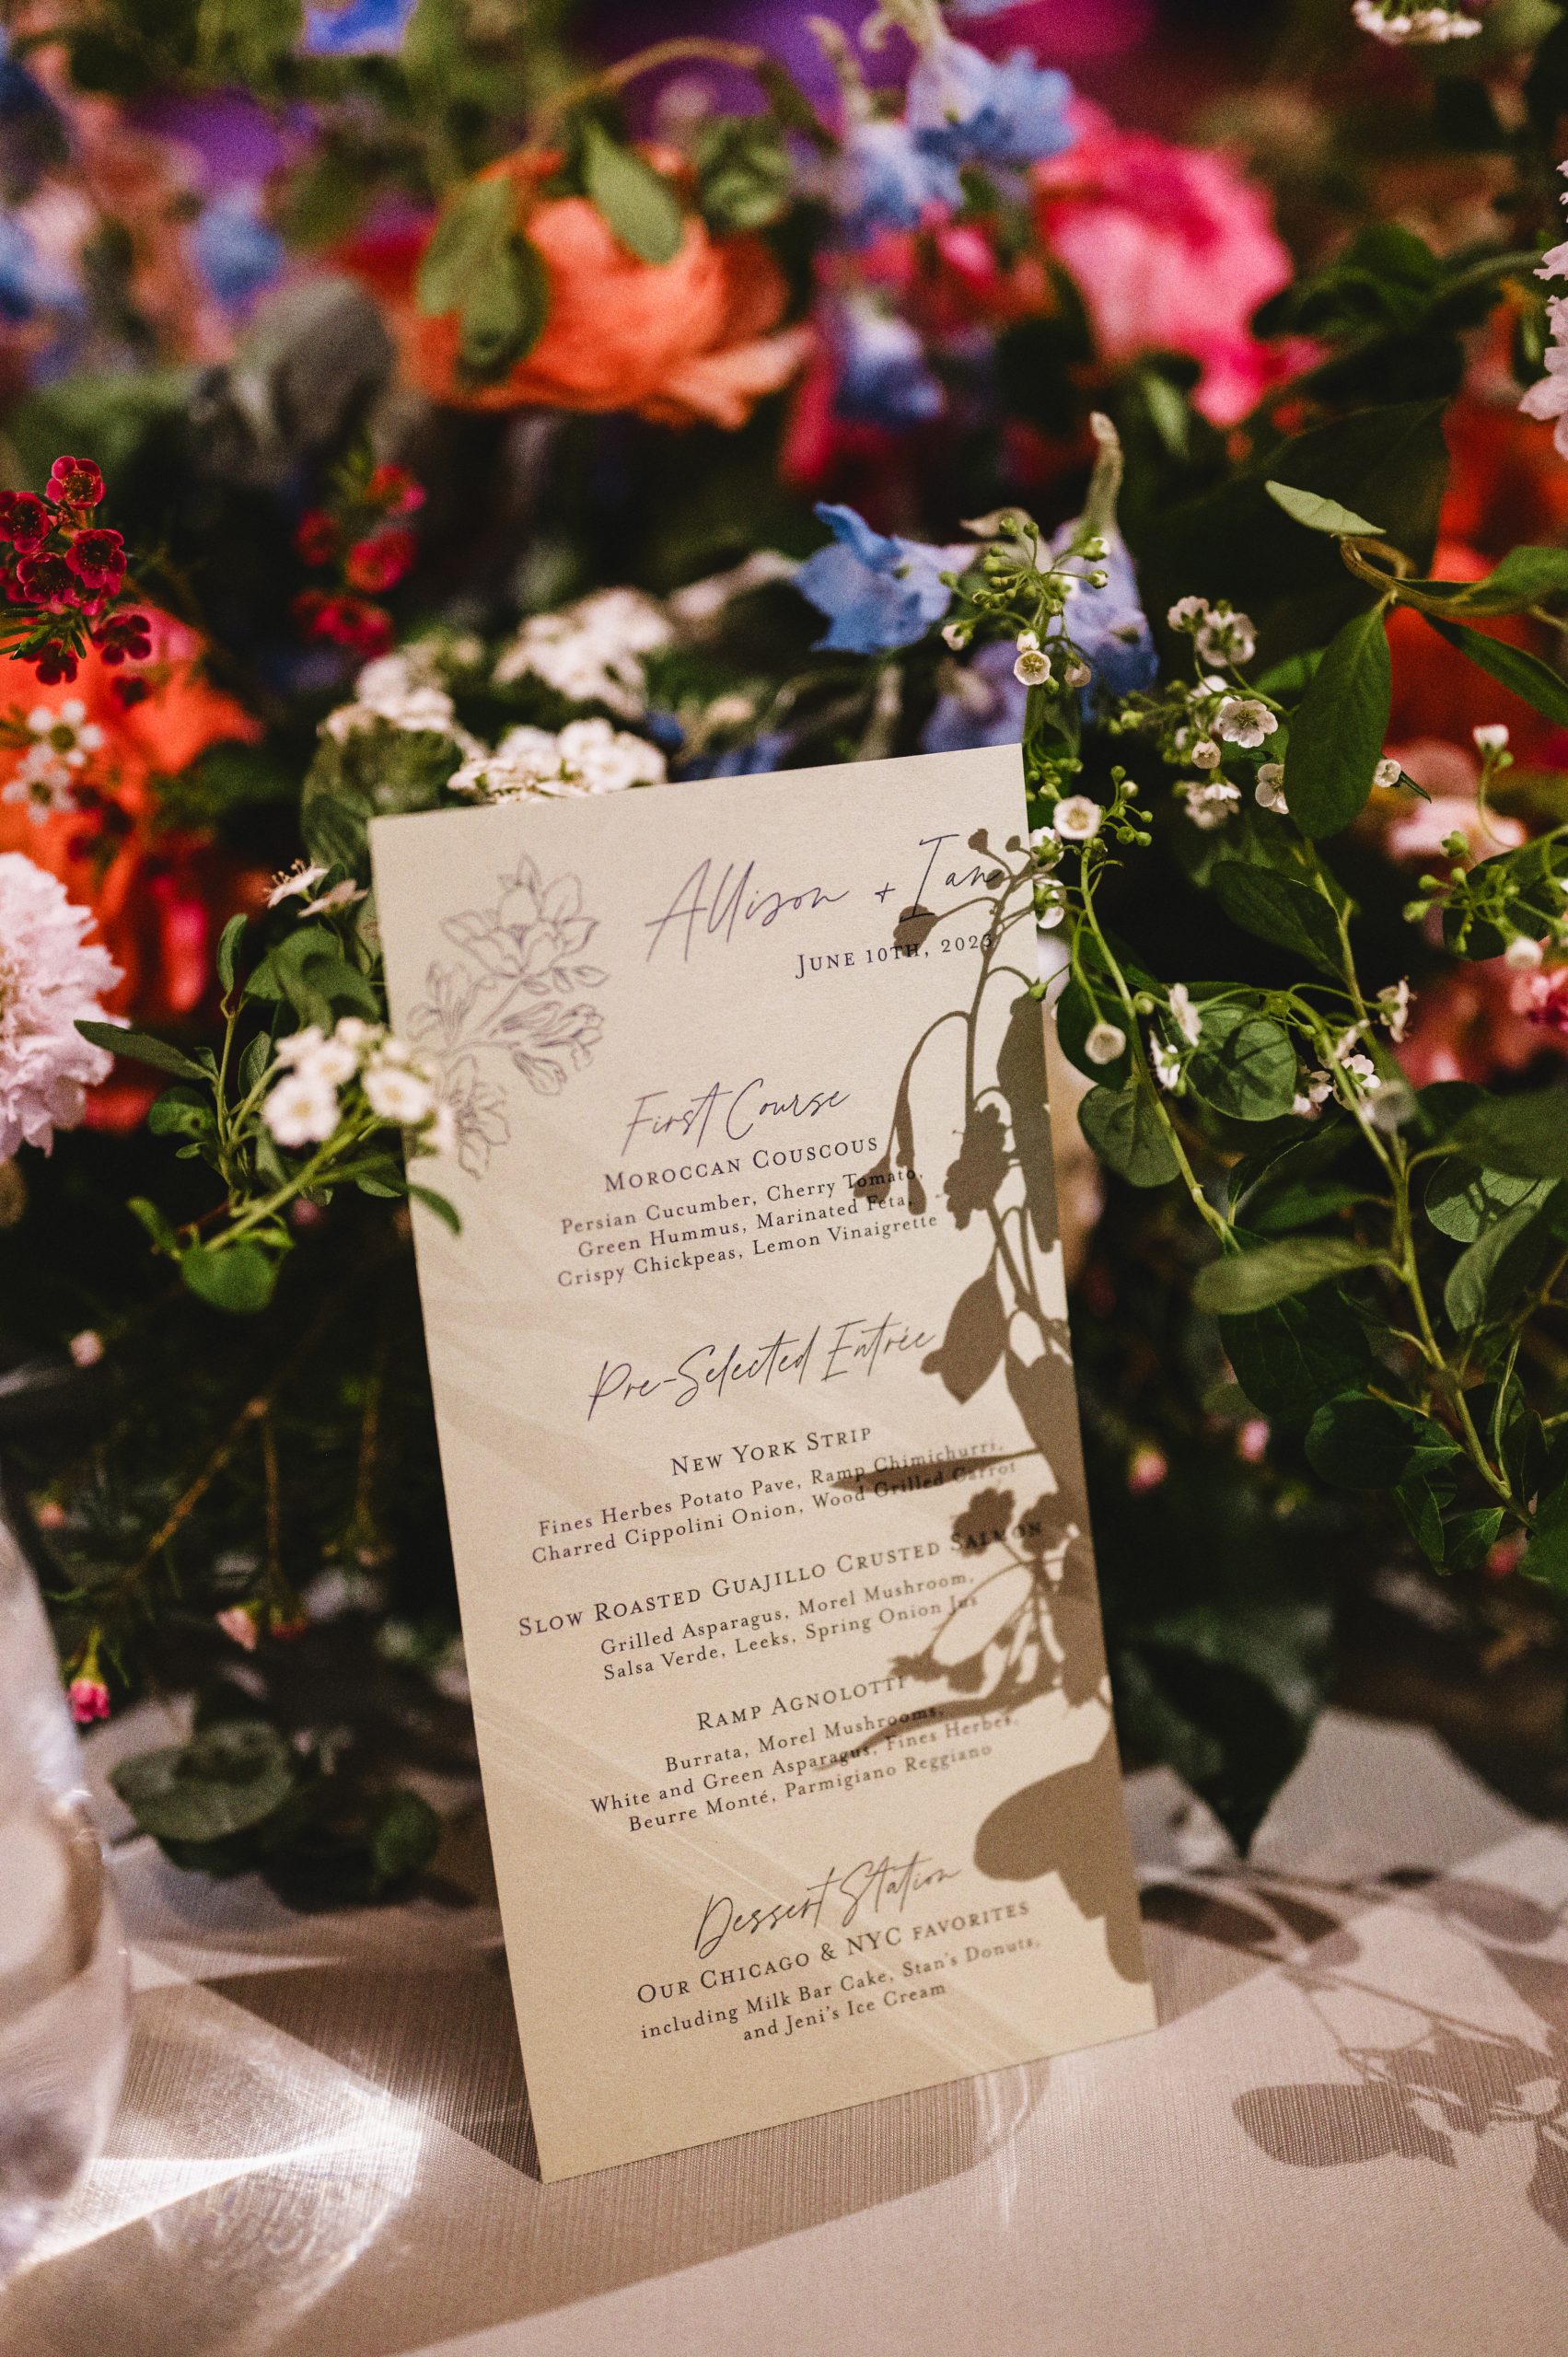 Allison + Ian
JUNE 10TH, 2023
First Course
MOROCCAN COUSCOUS
Persian Cucumber, Cherry Tomato,
Green Hummus, Marinated Feta,
Crispy Chickpeas, Lemon Vinaigrette
Pre-Selected Entrée
NEW YORK STRIP
Fines Herbes Potato Pave, Ramp Chimichurri,
Charred Cippolini Onion, Wood Grilled Carrot
SLOW ROASTED GUAJILLO CRUSTED SALMON
Grilled Asparagus, Morel Mushroom,
Salsa Verde, Leeks, Spring Onion Jus
RAMP AGNOLOTTI
Burrata, Morel Mushrooms,
White and Green Asparagus, Fines Herbes,
Beurre Monté, Parmigiano Reggiano
Dessert Station
OUR CHICAGO & NYC FAVORITES
including Milk Bar Cake, Stan's Donuts,
and Jeni's Ice Cream